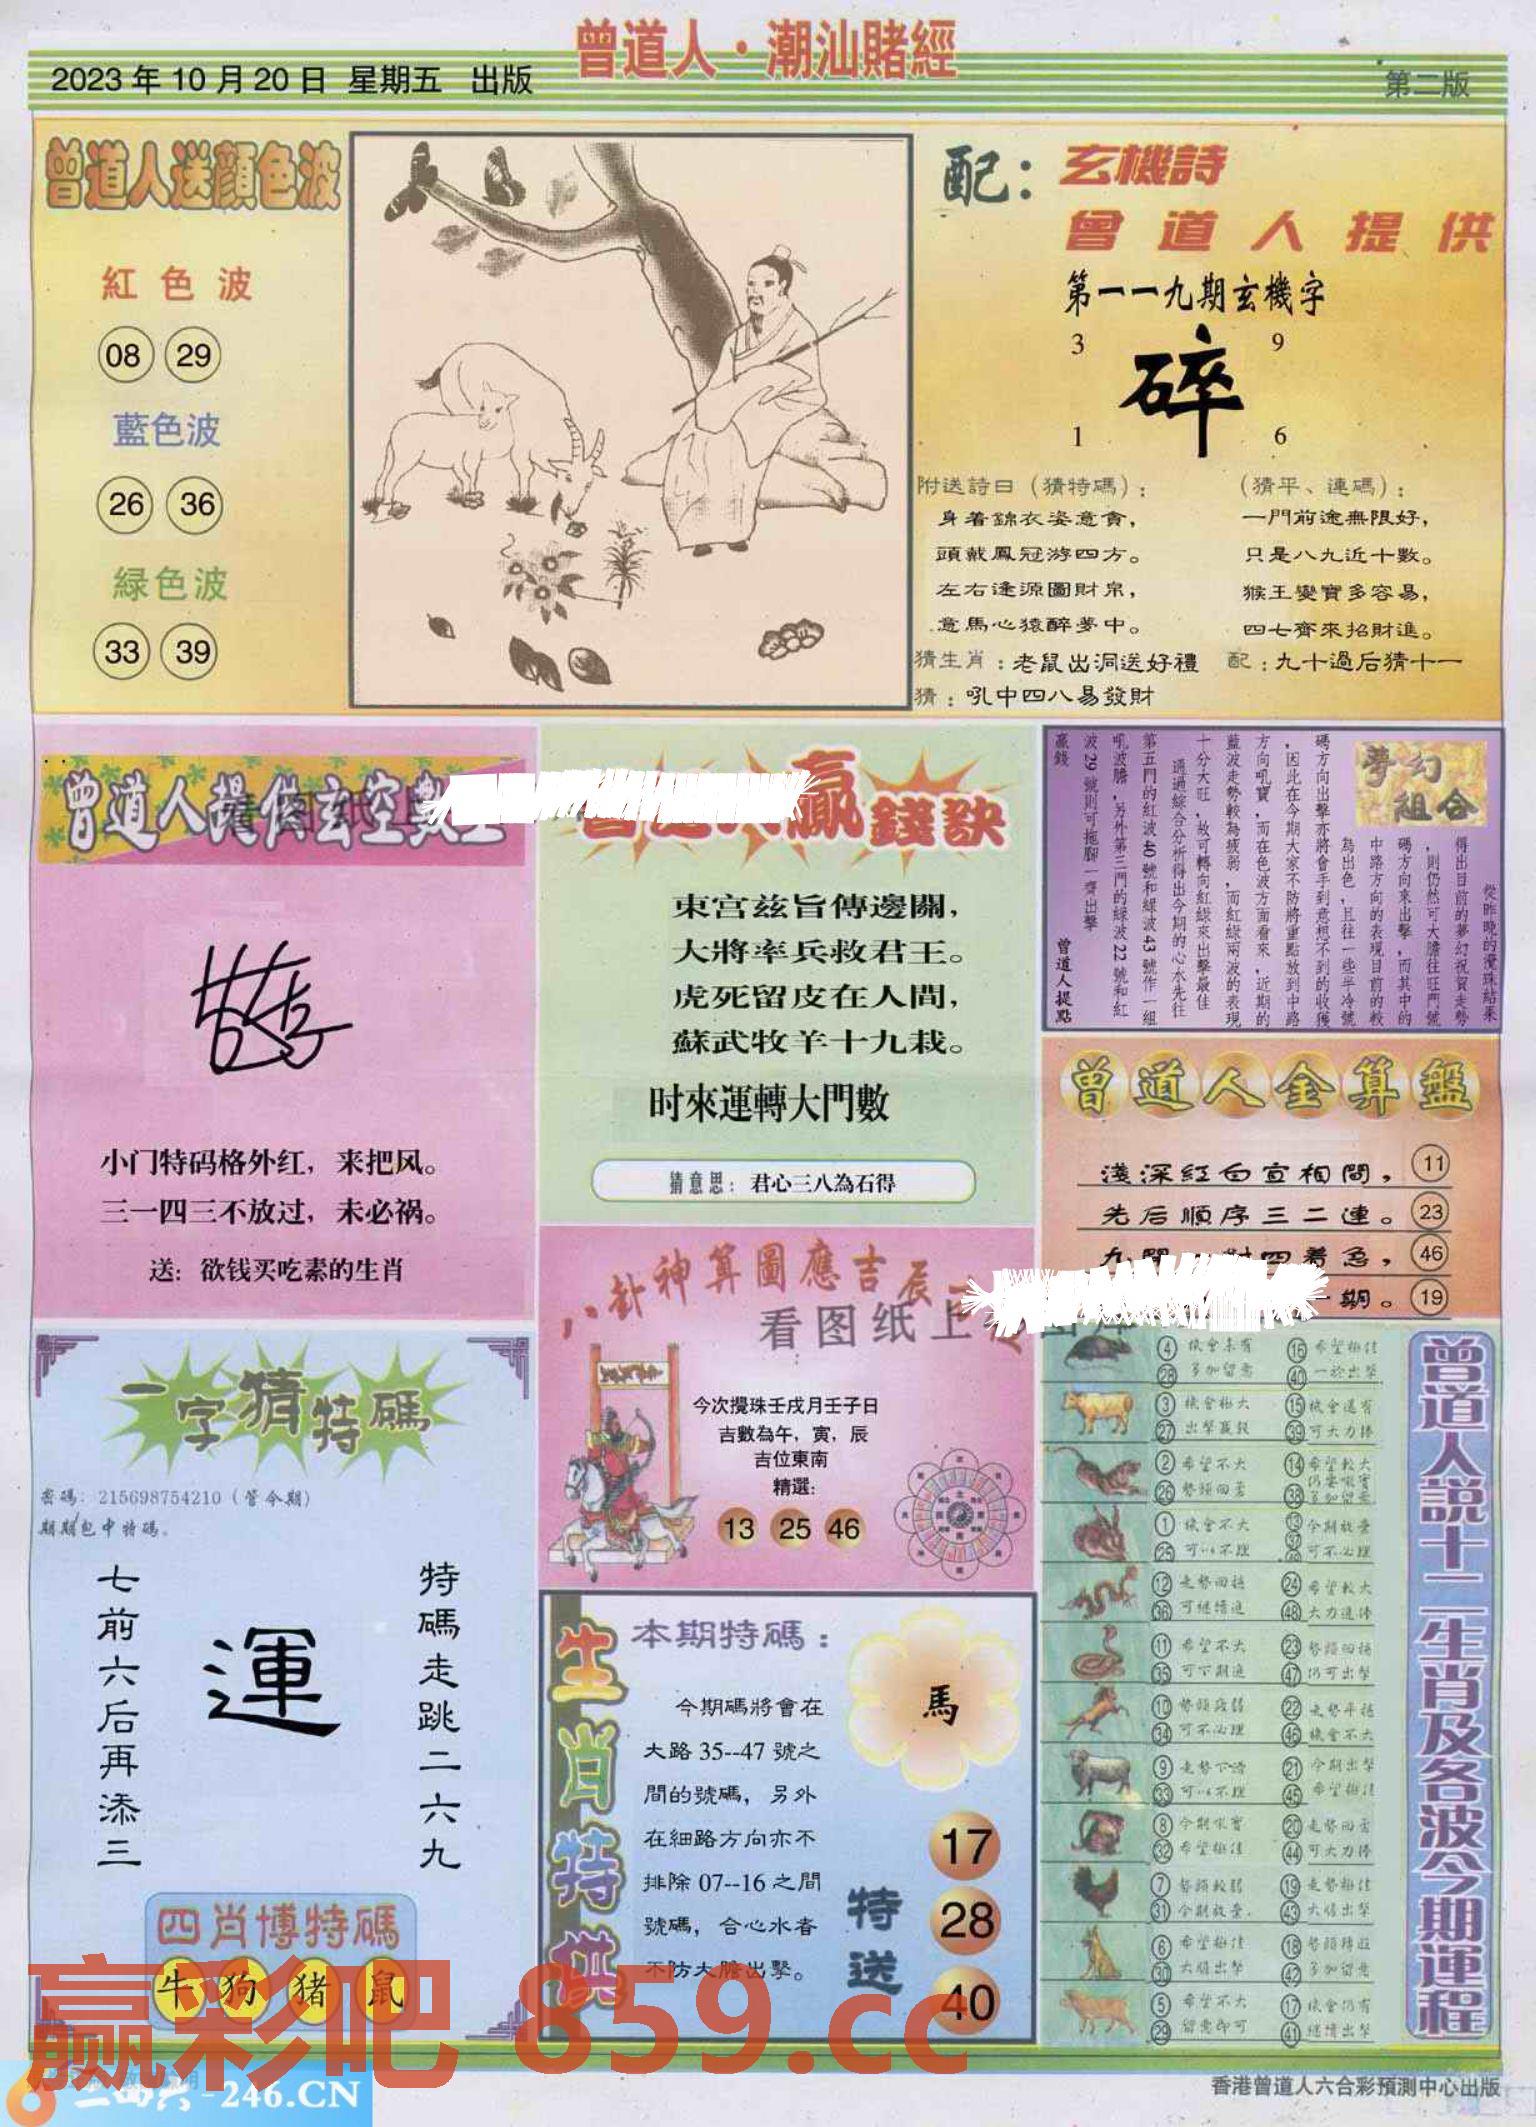 曾道人·潮汕賭經
2023年10月20日 星期五 出版
第二版
曾道人送顔色波
紅色波
08 29
藍色波
26 36
緑色波
33 39
配：玄機詩
曾道人提供
第一一九期玄機字
3 9
碎
1 6
附送詩曰（猜特碼）：
身着錦衣姿意貪，
頭戴鳳冠游四方。
左右逢源圖財帛，
意馬心猿醉夢中。
（猜平、連碼）：
一門前途無限好，
只是八九近十數。
猴王變寶多容易，
四七齊來招財進。
猜生肖：老鼠出洞送好禮 配：九十過后猜十一
猜：吼中四八易發財
曾道人提供玄空數
小门特码格外红，来把风。
三一四三不放过，未必祸。
送：欲钱买吃素的生肖
贏錢訣
東宫兹旨傳邊關，
大將率兵救君王。
虎死留皮在人間，
蘇武牧羊十九栽。
时來運轉大門數
猜意思：君心三八為石得
夢幻
組合
從昨晚的攪珠結果
得出目前的夢幻祝賀走勢
，則仍然可大膽往旺門號
碼方向來出擊，而其中的
中路方向的表現目前的較
為出色，且往一些半冷號
碼方向出擊亦將會手到意想不到的收獲
，因此在今期大家不防將重點放到中路
方向吼寶，而在色波方面看來，近期的
藍波走勢較為疲弱，而紅緑兩波的表現
十分大旺，故可轉向紅緑來出擊最佳
通過綜合分析得出今期的心水先往
第五門的紅波40號和緑波43號作一組
吼波膽，另外第三門的緑波22號和紅
波29號則可拖腳一齊出擊
贏錢
曾道人提點
曾道人金算盤
淺深紅白宣相間， 11
先后順序三二連。 23
四着急， 46
期。 19
八卦神算圖應吉辰
看图纸上
今次攪珠壬戌月壬子日
吉數為午，寅，辰
吉位東南
精選：
13 25 46
一字猜特碼
密碼：215698754210（管今期）
期期包中特碼。
特碼走跳二六九
運
七前六后再添三
四肖博特碼
牛 狗 猪 鼠
生肖特供
本期特碼：
馬
今期碼將會在
大路35--47號之
間的號碼，另外
在細路方向亦不
排除07--16之間
號碼，合心水者
不防大膽出擊。
特送
17
28
40
曾道人説十二生肖及各波今期運程
④ 機會未有 ⑯ 希望極佳
㉘ 多加留意 ㊵ 一於出擊
③ 機會極大 ⑮ 機會還有
㉗ 出擊贏錢 ㊴ 可大力捧
② 希望不大 ⑭ 希望較大
㉖ 勢頭回落 ㊳ 多加留意
① 機會不大 今期放棄
㉕ 可以不理 可不必理
⑫ 走勢回穩 ㉔ 希望較大
㊱ 可繼續追 ㊽ 大力追捧
⑪ 希望不大 ㉓ 勢頭回穩
㉟ 可下期追 ㊼ 仍可出擊
⑩ 勢頭疲弱 ㉒ 走勢平穩
㉞ 可不必理 ㊻ 機會不大
⑨ 走勢下滑 ㉑ 今期出擊
㉝ 可以不理 ㊺ 希望極佳
⑧ 今期吼寶 ⑳ 走勢回落
㉜ 希望極佳 ㊹ 可大力捧
⑦ 勢頭較弱 ⑲ 走勢極佳
㉛ 今期放棄 ㊸ 大膽出擊
⑥ 希望極佳 ⑱ 勢頭轉旺
㉚ 大膽出擊 ㊷ 多加留意
⑤ 希望不大 ⑰ 機會仍有
㉙ 留意即可 ㊶ 繼續出擊
赢彩吧 859.cc
二四六-246.CN
香港曾道人六合彩預測中心出版